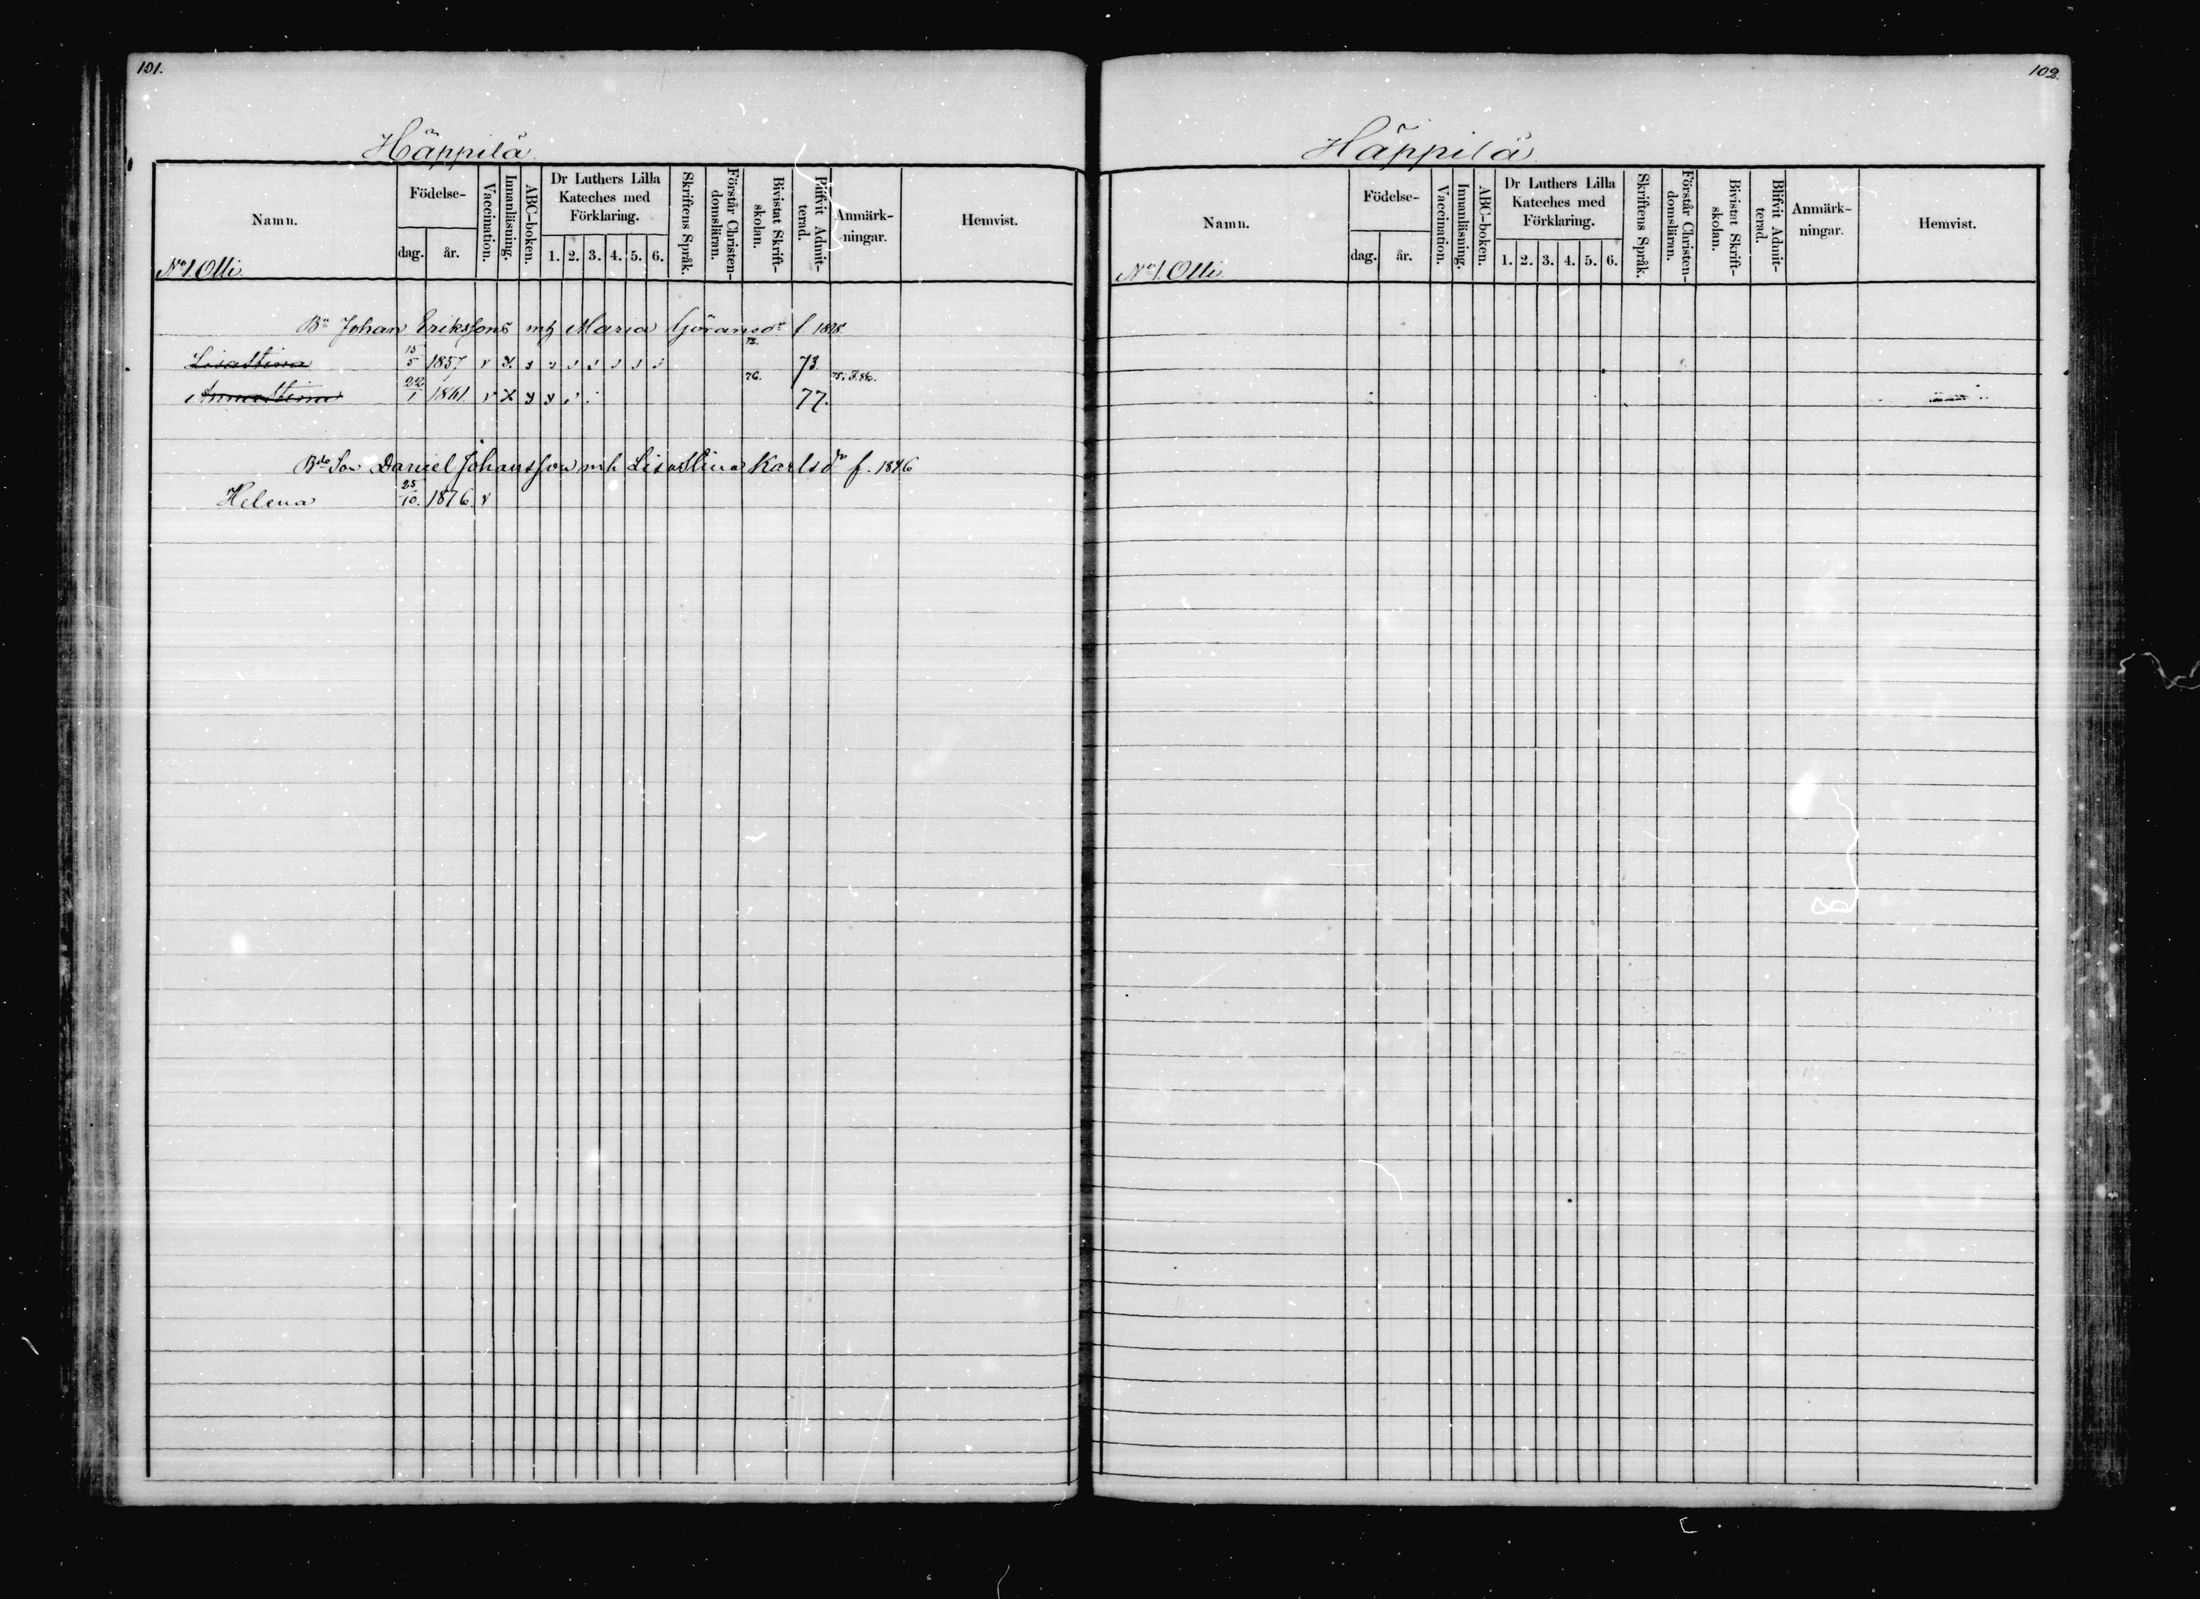 101.
Häppilä
Namn.
Födelse-
dag.
år.
Vaccination.
Innanläsning.
ABC-boken.
Dr Luthers Lilla
Kateches med
Förklaring.
1. 2. 3. 4. 5. 6.
Skriftens Språk.
Förstår Christen-
domsläran.
Bivistat Skrift-
skolan.
Blifvit Admit-
terad.
Anmärk-
ningar.
Hemvist.
No 1. Olli
Bn Johan Erikssons mh Maria Göransdr f 1828
Lisa Stina 15/5 1857 v x 73.
Anna Stina 22/1 1861. v x 76. 77.
Bdo Son Daniel Johansson mh Lisa Stina Karlsdr f. 1846
Helena 25/10. 1876. v
102.
Häppilä
Namn.
Födelse-
dag.
år.
Vaccination.
Innanläsning.
ABC-boken.
Dr Luthers Lilla
Kateches med
Förklaring.
1. 2. 3. 4. 5. 6.
Skriftens Språk.
Förstår Christen-
domsläran.
Bivistat Skrift-
skolan.
Blifvit Admit-
terad.
Anmärk-
ningar.
Hemvist.
No 1. Olli